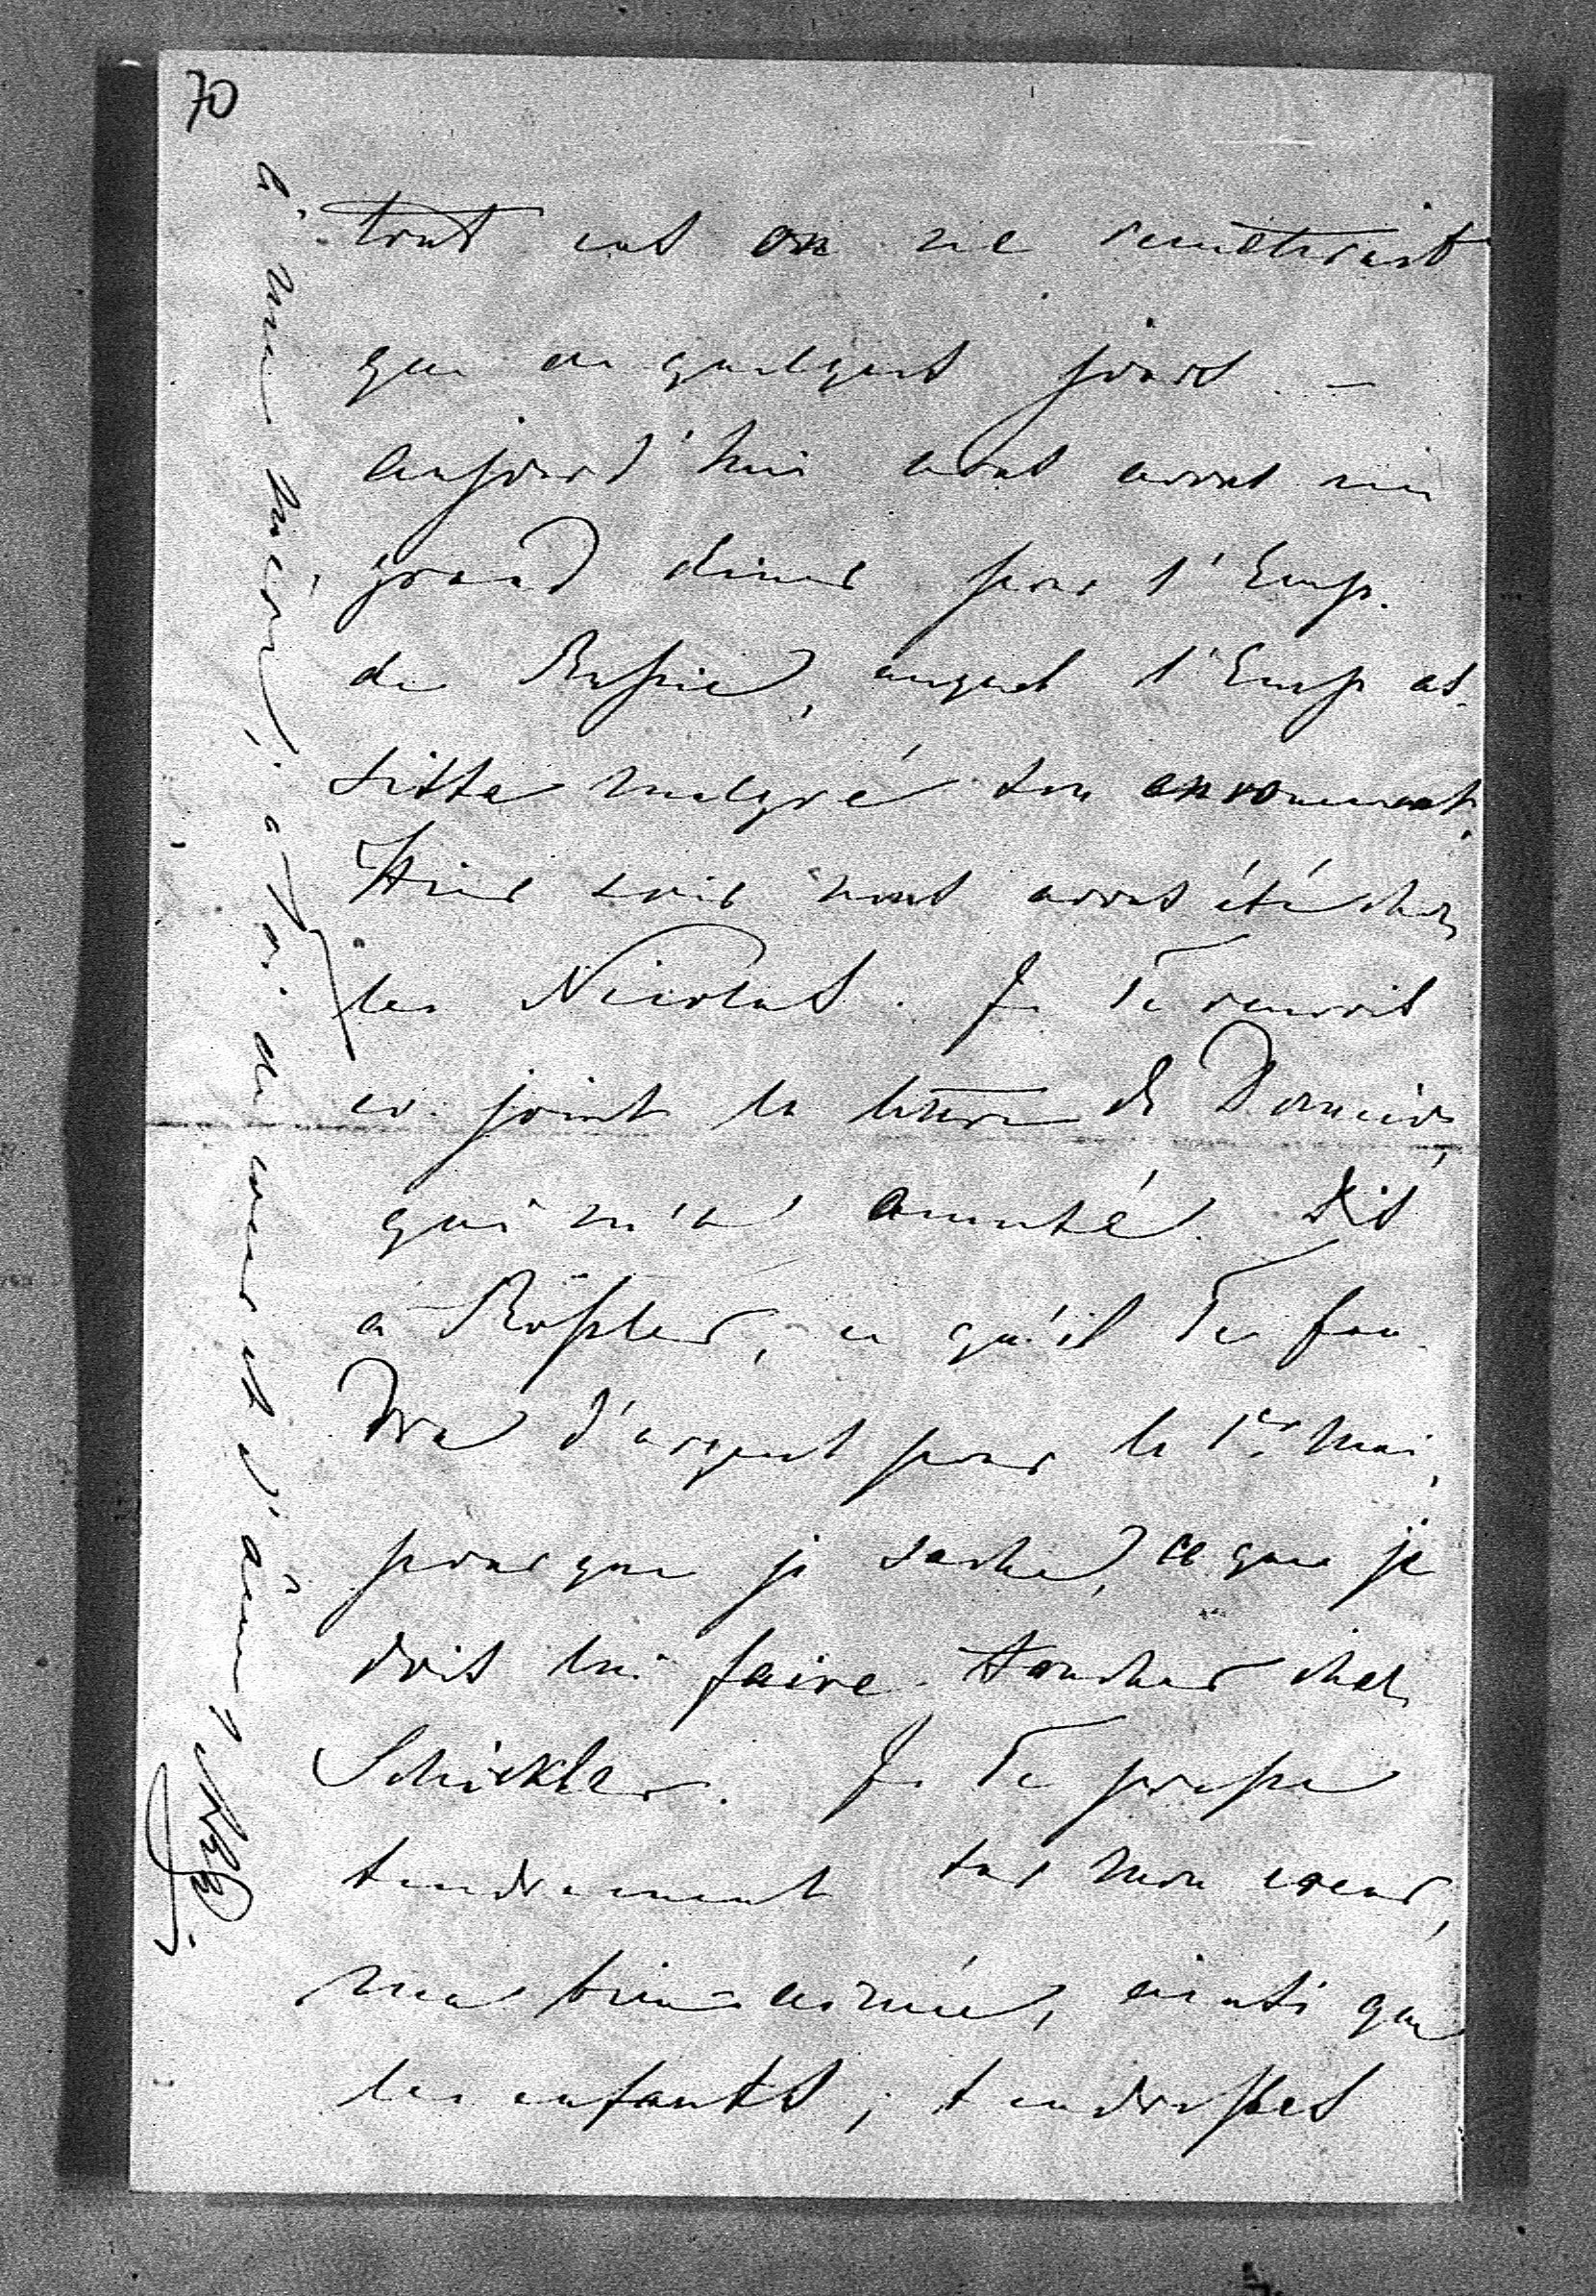 70
tout cas on ne remettrait
que de quelques jours. —
Aujourd'hui nous avons un
grand diner pour l'Emp.
de Russie, auquel l'Emp as-
siste malgré son enrouement.
Hier soir nous avons été chez
les Nicolas. Je Te renvois
ci-joint la lettre de
qui m'a amusé. Dis
à Rössler, ce qu'il Te fau-
dra d'argent pour le 1er Mai,
pour que je sache, ce que je
dois lui faire toucher chez
Schickler. Je Te presse
tendrement sur mon coeur,
ma bien-aimée, ainsi que
les enfants; tendresses
à ma mère; à Toi de coeur et d'âme!